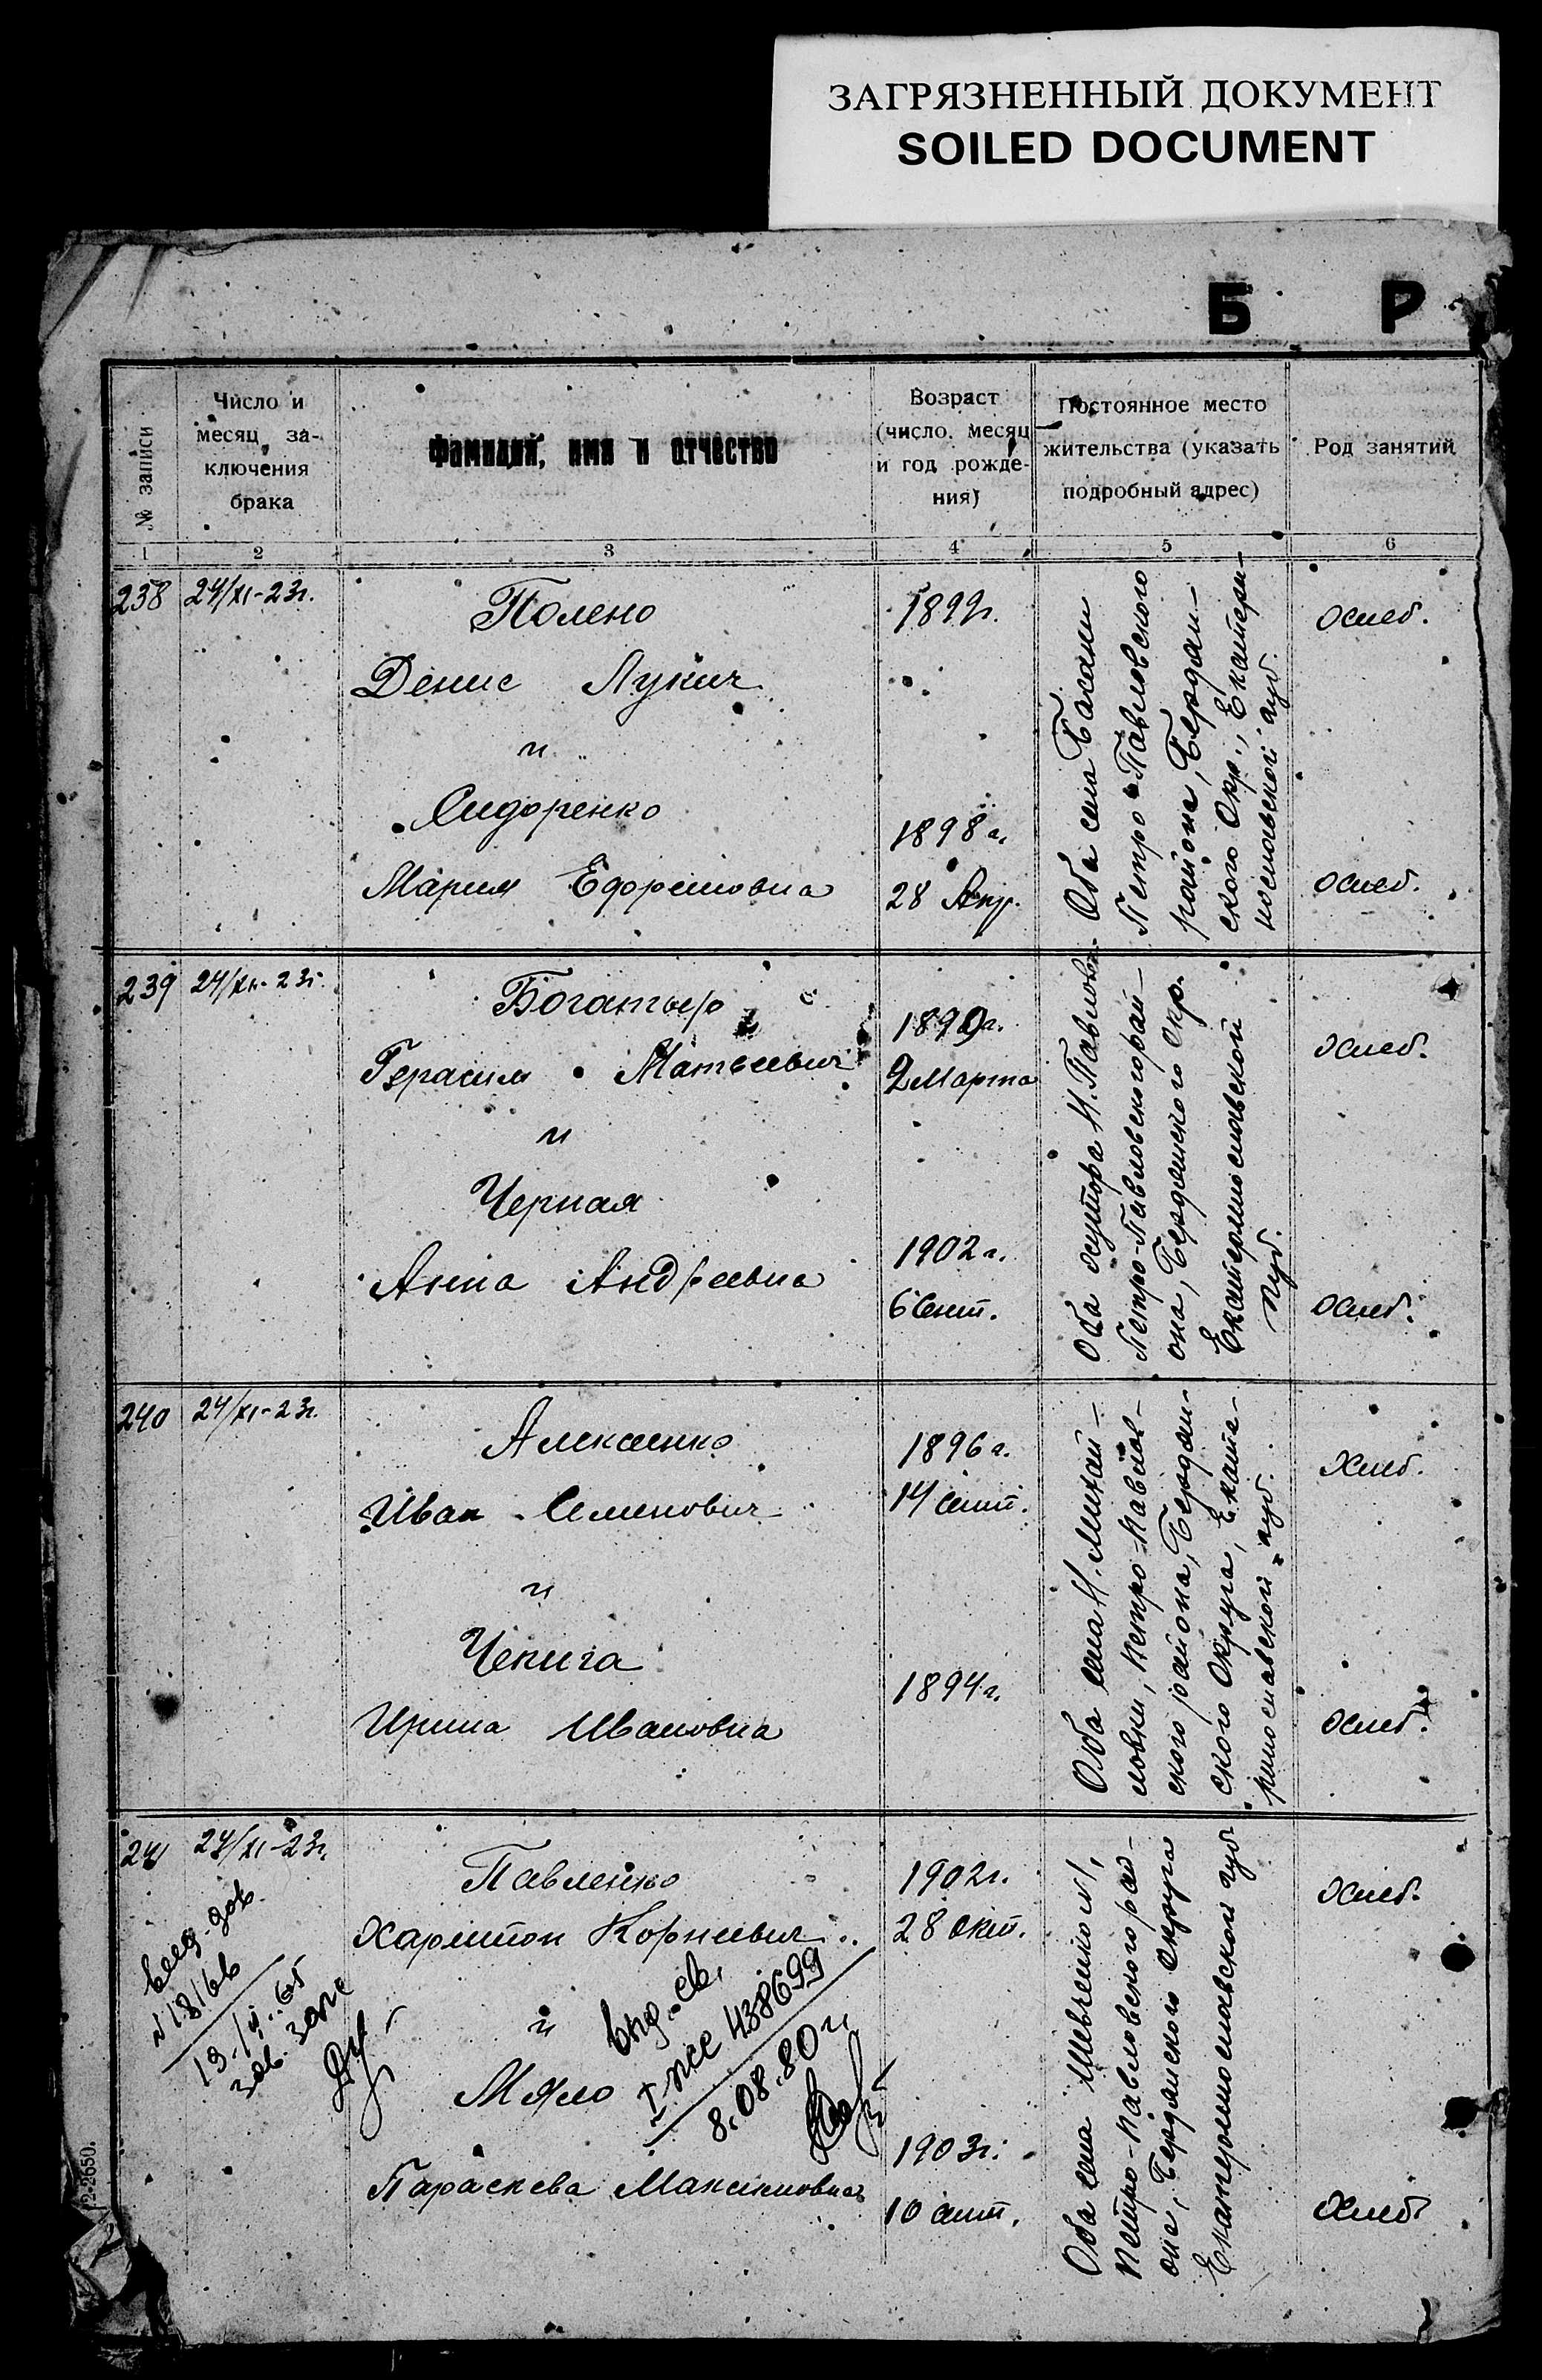 ЗАГРЯЗНЕННЫЙ ДОКУМЕНТ
SOILED DOCUMENT
Б Р
№ записи
Число и
месяц за-
ключения
брака
Фамилия, имя и отчество
Возраст
(число, месяц
и год рожде-
ния)
Постоянное место
жительства (указать
подробный адрес)
Род занятий
1 2 3 4 5 6
238 24/XI-23г.
Полено
Денис Лукич
и
Сидоренко
Мария Ефремовна
1899г.
1898г.
28 Апр.
Оба села Басани
Петро-Павловского
района, Бердян-
ского Окр., Екатери-
нославской губ.
хлеб.
хлеб.
239 24/XI-23г.
Богатыр
Герасим Матвеевич
и
Черная
Анна Андреевна
1899г.
2 Марта
1902г.
6 Сент.
Оба хутора Н.Павловки
Петро-Павловского рай-
она, Бердянского Окр.
Екатеринославской
Губ.
хлеб.
хлеб.
240 24/XI-23г.
Алексеенко
Иван Семенович
и
Чепига
Ирина Ивановна
1896г.
14 сент.
1894г.
Оба села Н. Михай-
ловки, Петро-Павлов-
ского района, Бердян-
ского Округа, Екате-
ринославской губ.
Хлеб.
хлеб.
241 24/XI-23г.
Павленко
Харитон Корнеевич
и
Мяло
Параскева Максимовна
1902г.
28 окт.
1903г.
10 сент.
Оба села Шевченко N1,
Петро-Павловского рай-
она, Бердянского Округа
Екатеринославской губ
хлеб.
хлеб
N 18166
зав. загс
выд. св.
I-ЖС 438699
8.08.80г.
12-2650.